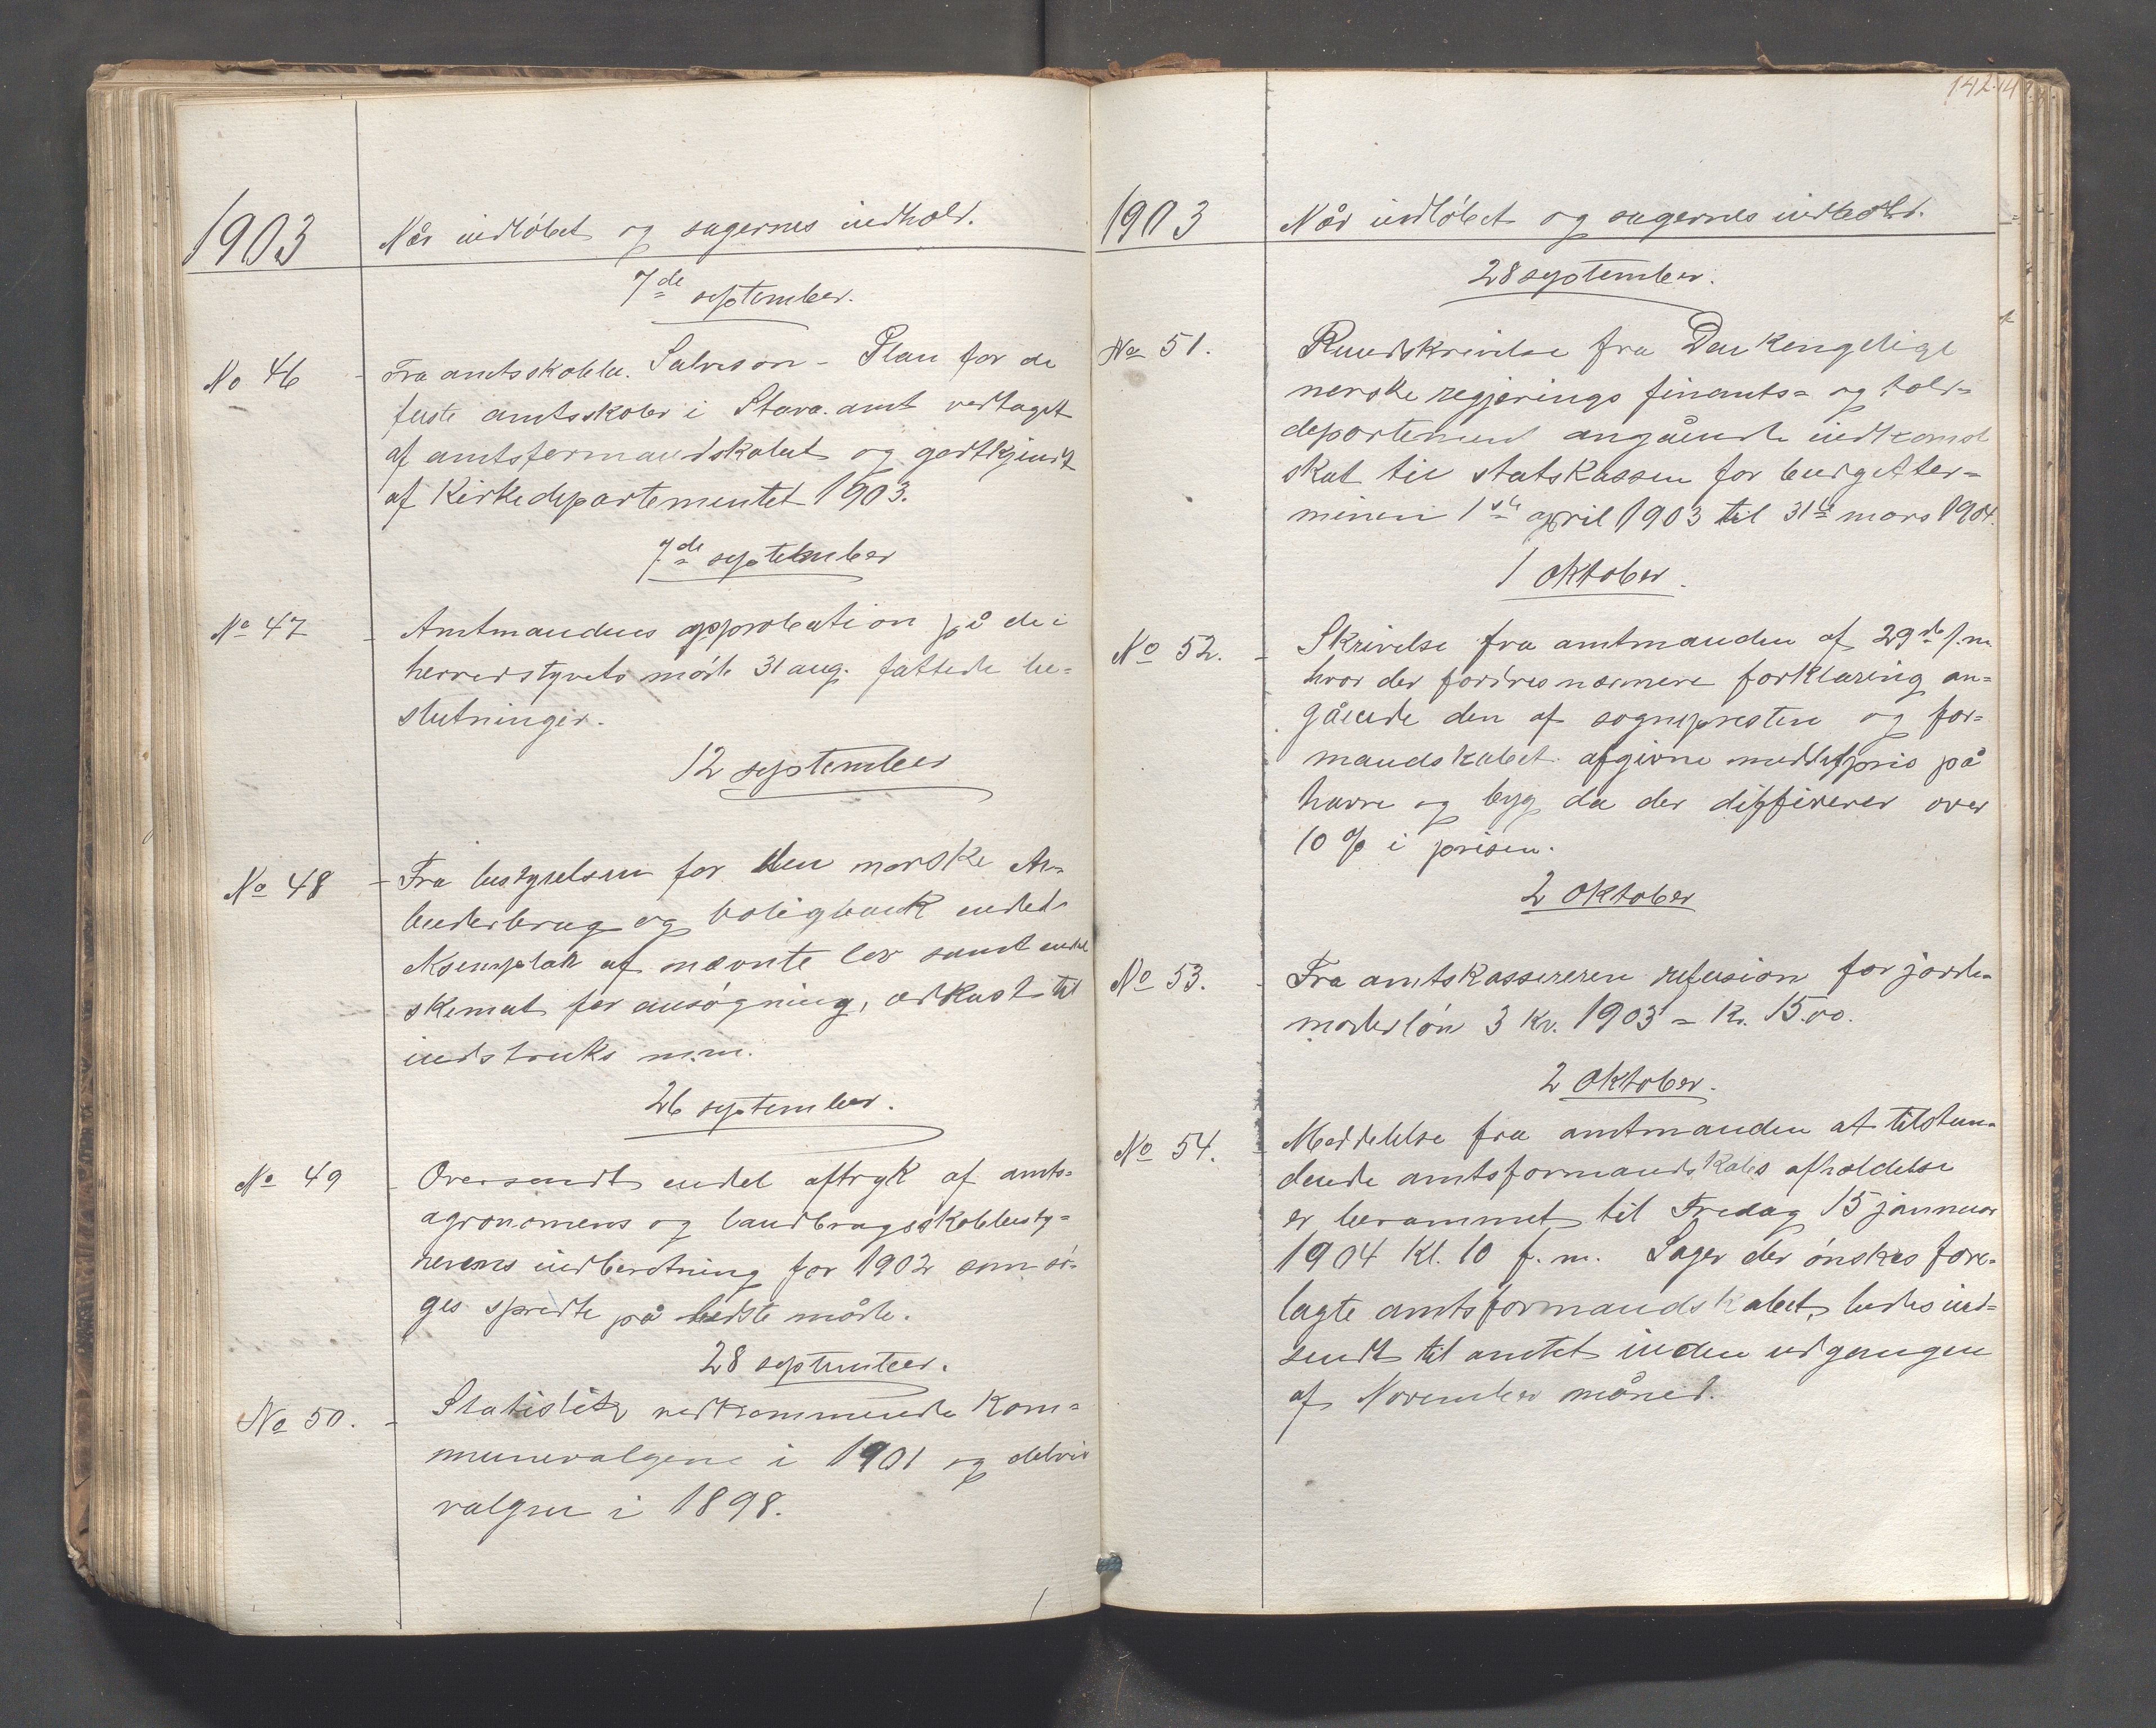 1903
Når indløbet og sagernes indhold.
7de september.
No 46
Fra amtsskolebe. Salveson - Plan for de
faste amtsskoler i Stava. amt vedtaget
af amtsformandskabet og godtkjendt
af Kirkedepartementet 1903.
7de september
No 47
Amtmandens approbation på de i
herredstyrets møde 31 aug. fattede be=
slutninger.
12 september
No 48
Fra bestyrelsen for den norske Ar=
beiderbrug og boligbank endel
eksemplar af nævnte lov samt endel
skemat for ansøgning, udkast til
indstruks m.m.
26 september.
No 49
Oversendt endel aftryk af amts=
agronomens og landbrugsskolebesty=
rerens indberetning for 1902 som sø=
ges spredte på bedste måde.
28 september.
No 50.
Statistik vedkommende Kom=
munevalgene i 1901 og delvis
valgene i 1898.
142
1903
Når indløbet og sagernes indhold.
28 september.
No 51.
Rundskrivelse fra Den kongelige
norske regjerings finants= og told=
departement angående indkomst
skat til statskassen for budgetter=
minen 1ste april 1903 til 31te mars 1904.
1 oktober.
No 52.
Skrivelse fra amtmanden af 29de f.m.
hvor der fordres nærmere forklaring an=
gående den af sognepresten og for=
mandskabet afgivne middelpris på
havre og byg da der differerer over
10 % i prisen.
2 oktober
No 53.
Fra amtskassereren refusion for jorde=
moderløn 3 Kv. 1903 = Kr. 15.00.
2 oktober.
No 54.
Meddelelse fra amtmanden at tilstun=
dende amtsformandskabs afholdelse
er berammet til Fredag 15 jannuar
1904 kl. 10 f. m. Sager der ønskes fore=
lagte amtsformandskabet, bedes ind=
sendt til amtet inden udgangen
af November måned.